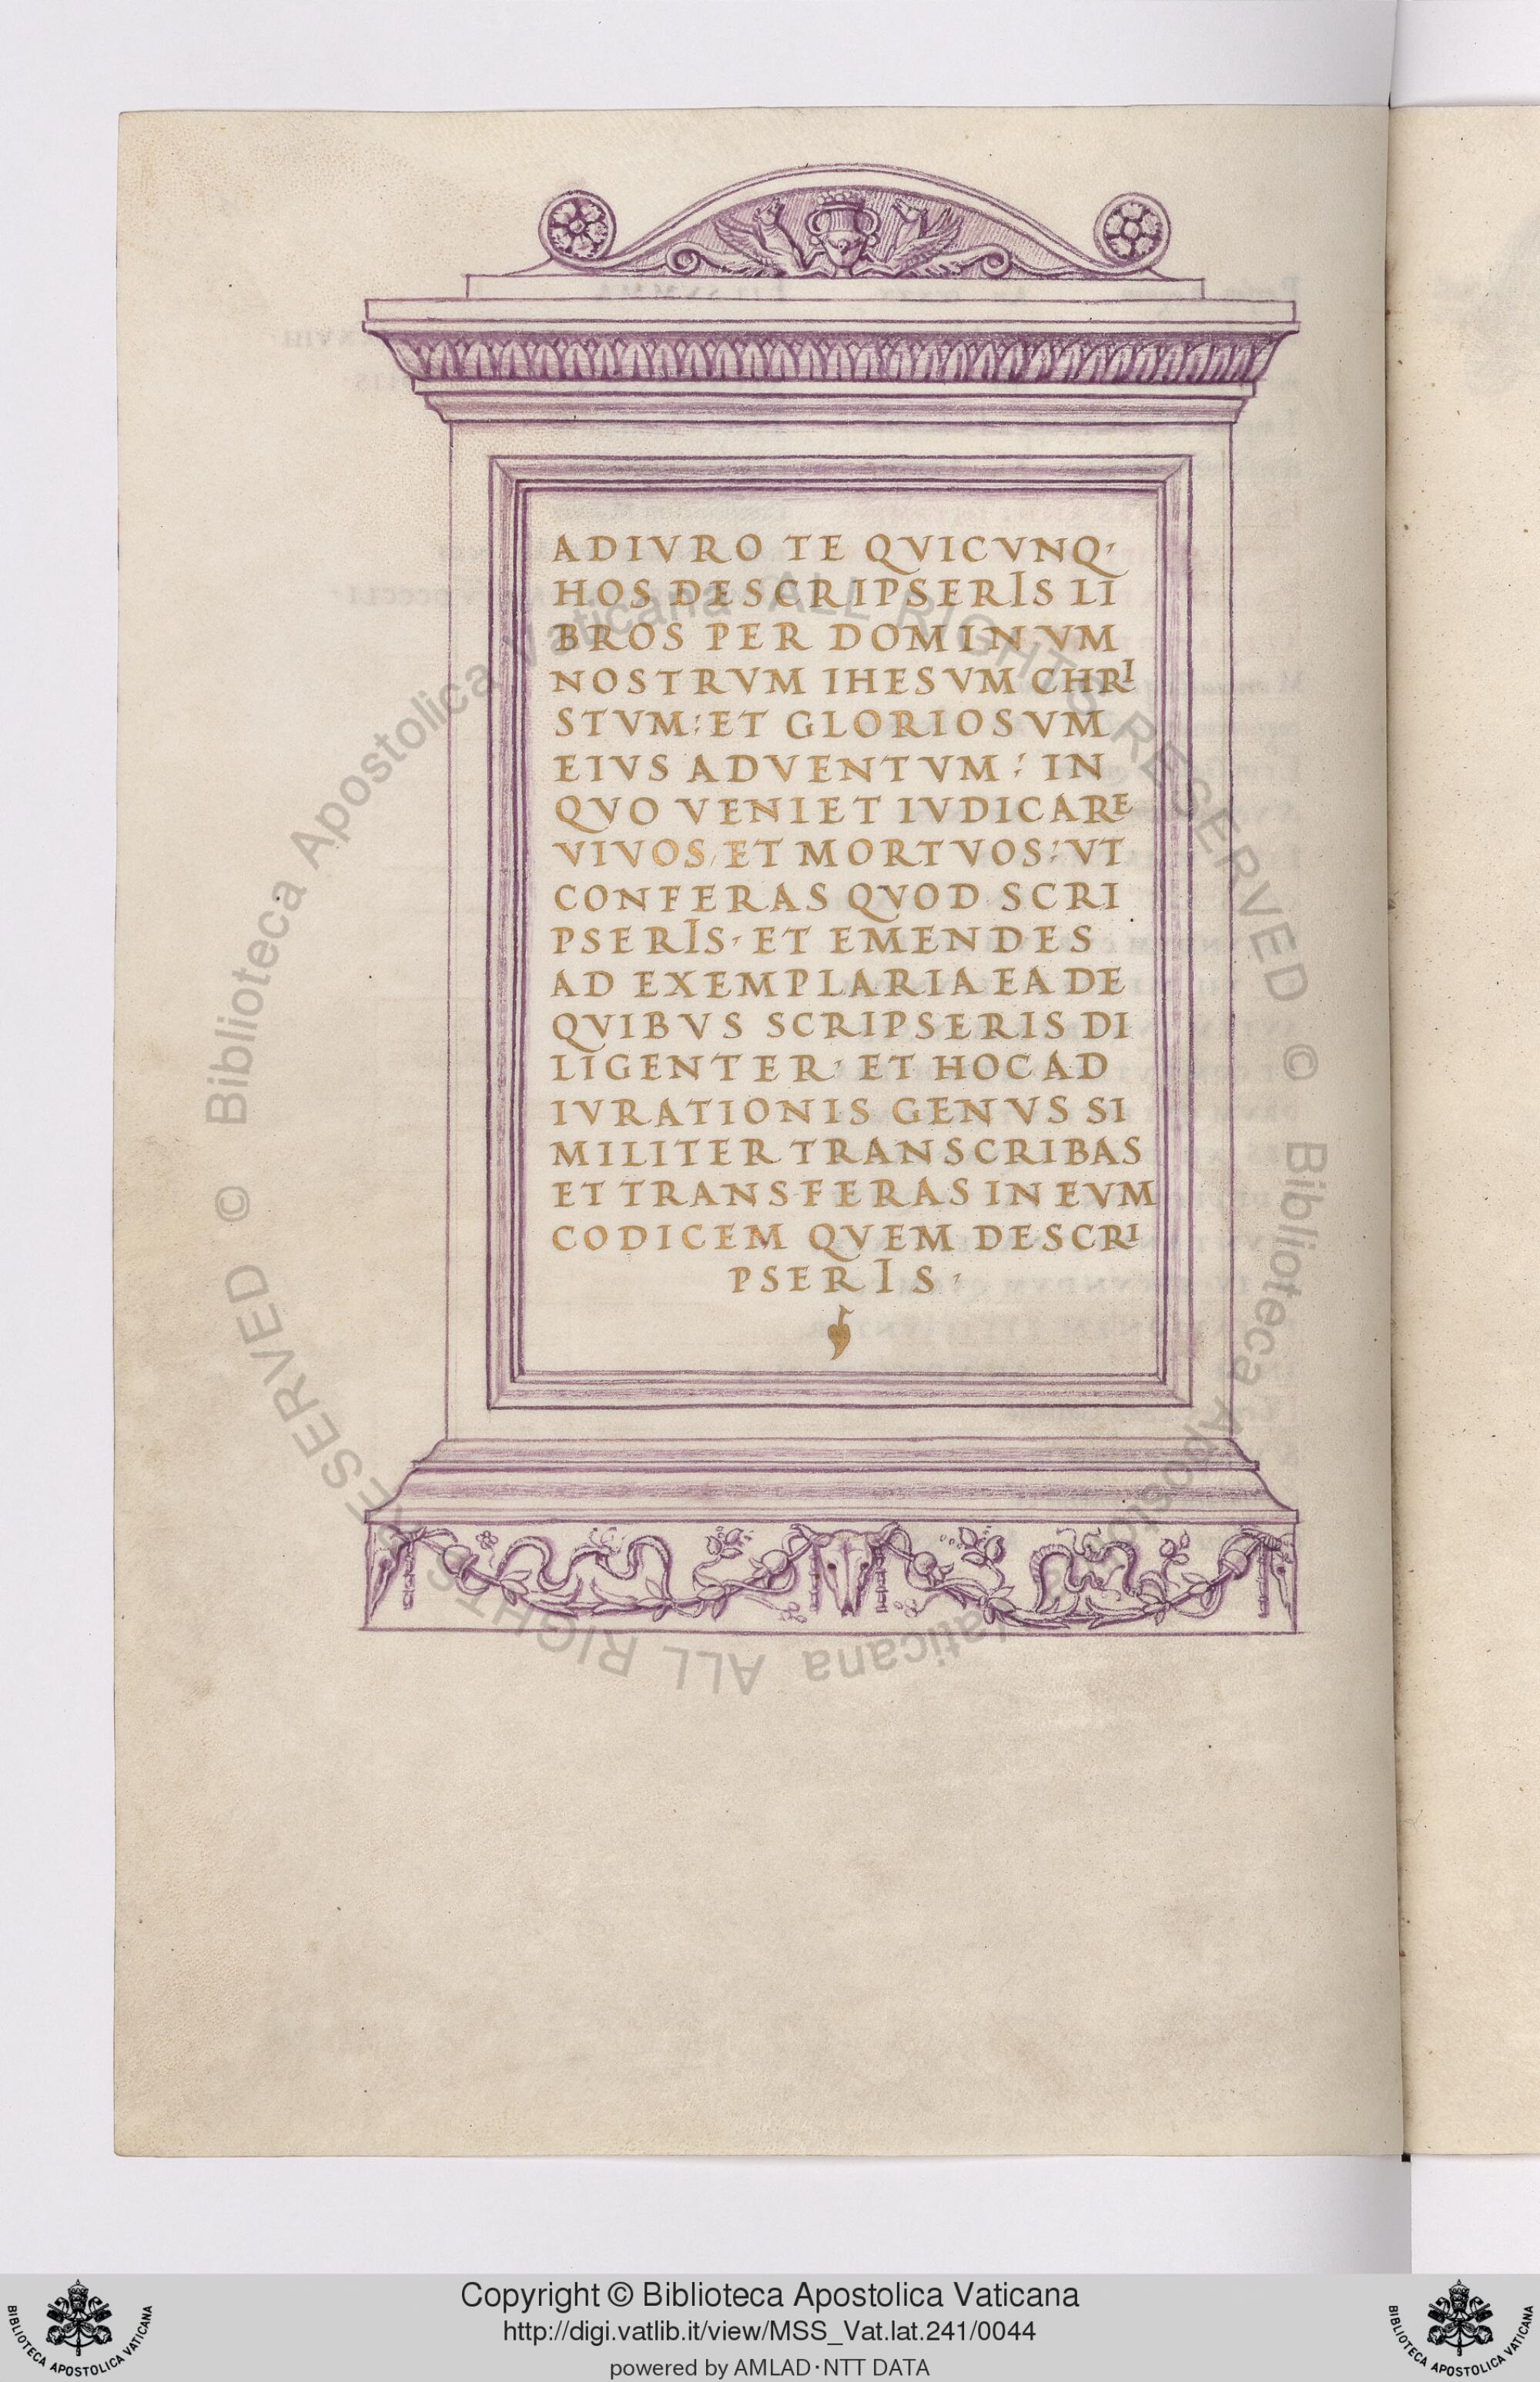 ADIVRO TE QVICVNQ·
HOS DESCRIPSERIS LI
BROS PER DOMINVM
NOSTRVM IHESVM CHRI
STVM: ET GLORIOSVM
EIVS ADVENTVM: IN
QVO VENIET IVDICARE
VIVOS, ET MORTVOS: VT
CONFERAS QVOD SCRI
PSERIS· ET EMENDES
AD EXEMPLARIA EA DE
QVIBVS SCRIPSERIS DI
LIGENTER· ET HOC AD
IVRATIONIS GENVS SI
MILITER TRANSCRIBAS
ET TRANSFERAS IN EVM
CODICEM QVEM DESCRI
PSERIS·
© Biblioteca Apostolica Vaticana ALL RIGHTS RESERVED
© Biblioteca Apostolica Vaticana ALL RIGHTS RESERVED
Copyright © Biblioteca Apostolica Vaticana
http://digi.vatlib.it/view/MSS_Vat.lat.241/0044
powered by AMLAD·NTT DATA
BIBLIOTECA APOSTOLICA VATICANA
BIBLIOTECA APOSTOLICA VATICANA